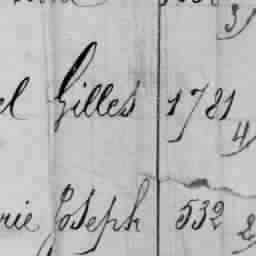 3/
el Gilles 1781
4/
rie Joseph 532
2/